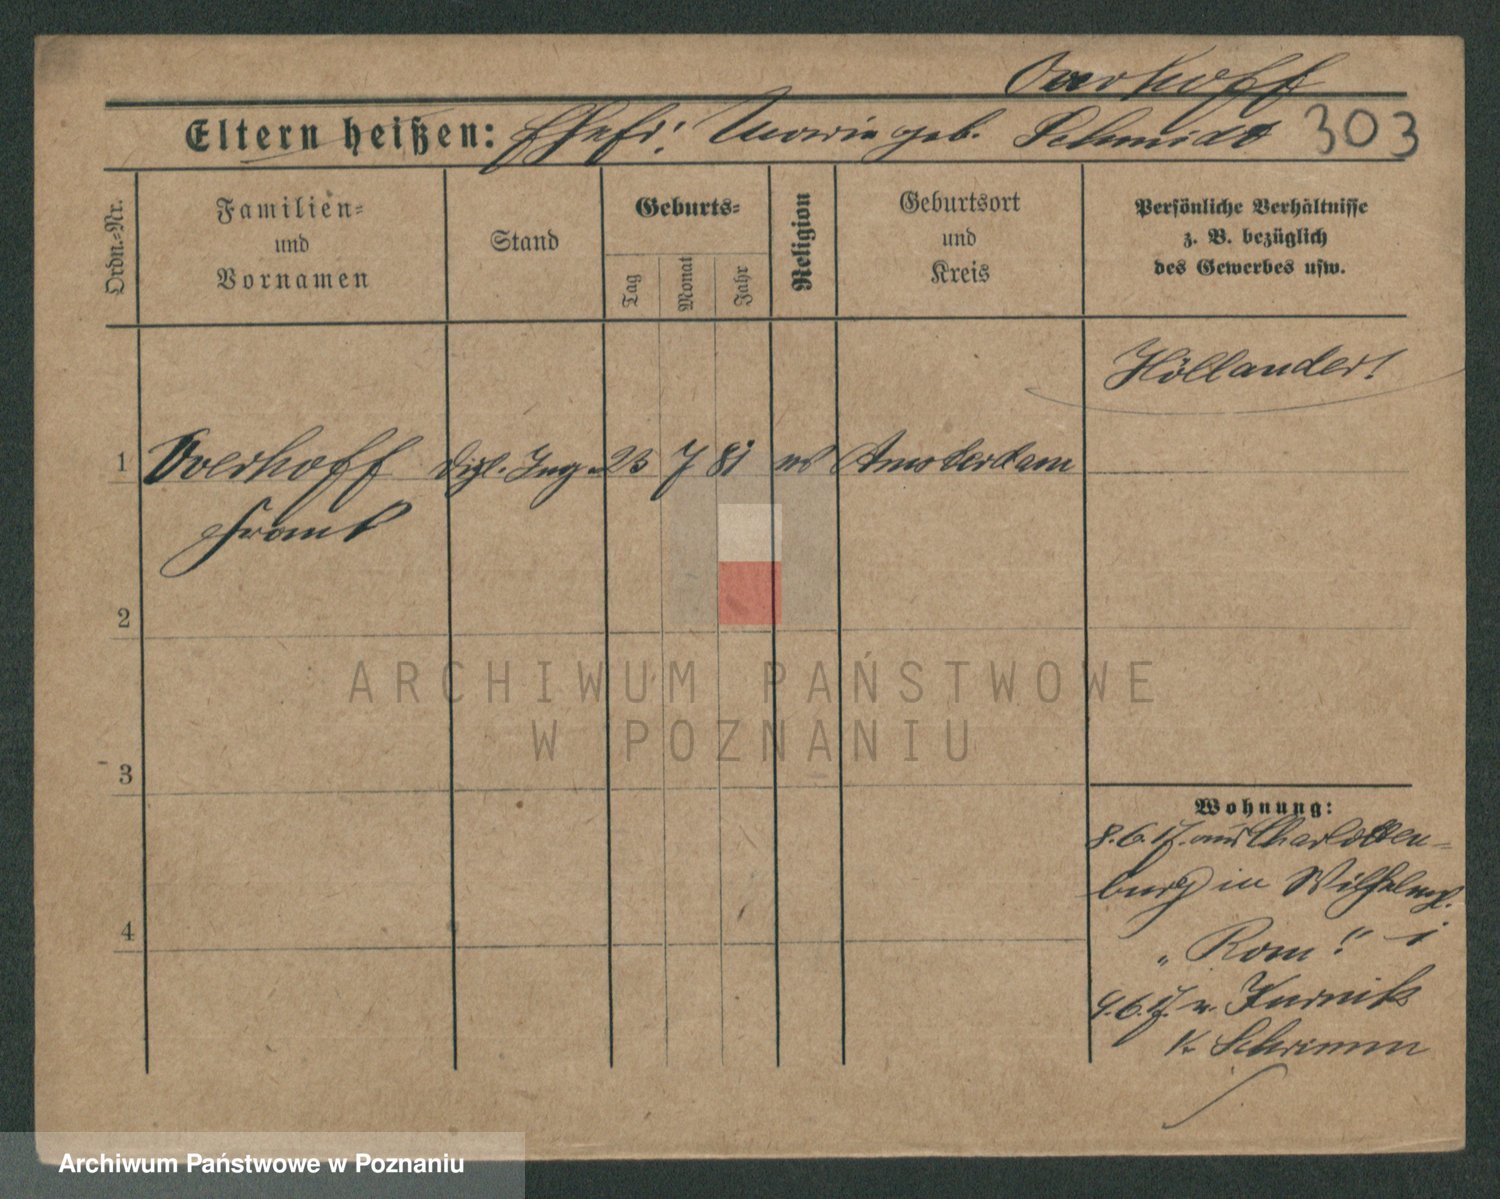 Overhoff
Eltern heißen: Ehefr: Maria geb. Schmidt 303
Ordn.-Nr.
Familien-
und
Vornamen
Stand
Geburts-
Tag
Monat
Jahr
Religion
Geburtsort
und
Kreis
Persönliche Verhältnisse
z. B. bezüglich
des Gewerbes usw.
Holländer!
1 Overhoff dipl. Ing. 23 7 81 Amsterdam
Frank
2
ARCHIWUM PAŃSTWOWE
W POZNANIU
3
Wohnung:
8.6.17. aus Charlotten-
burg in Wilhelmpl.
4
„Rom“
9.6.17. n. Kurnik
K. Schrimm
Archiwum Państwowe w Poznaniu